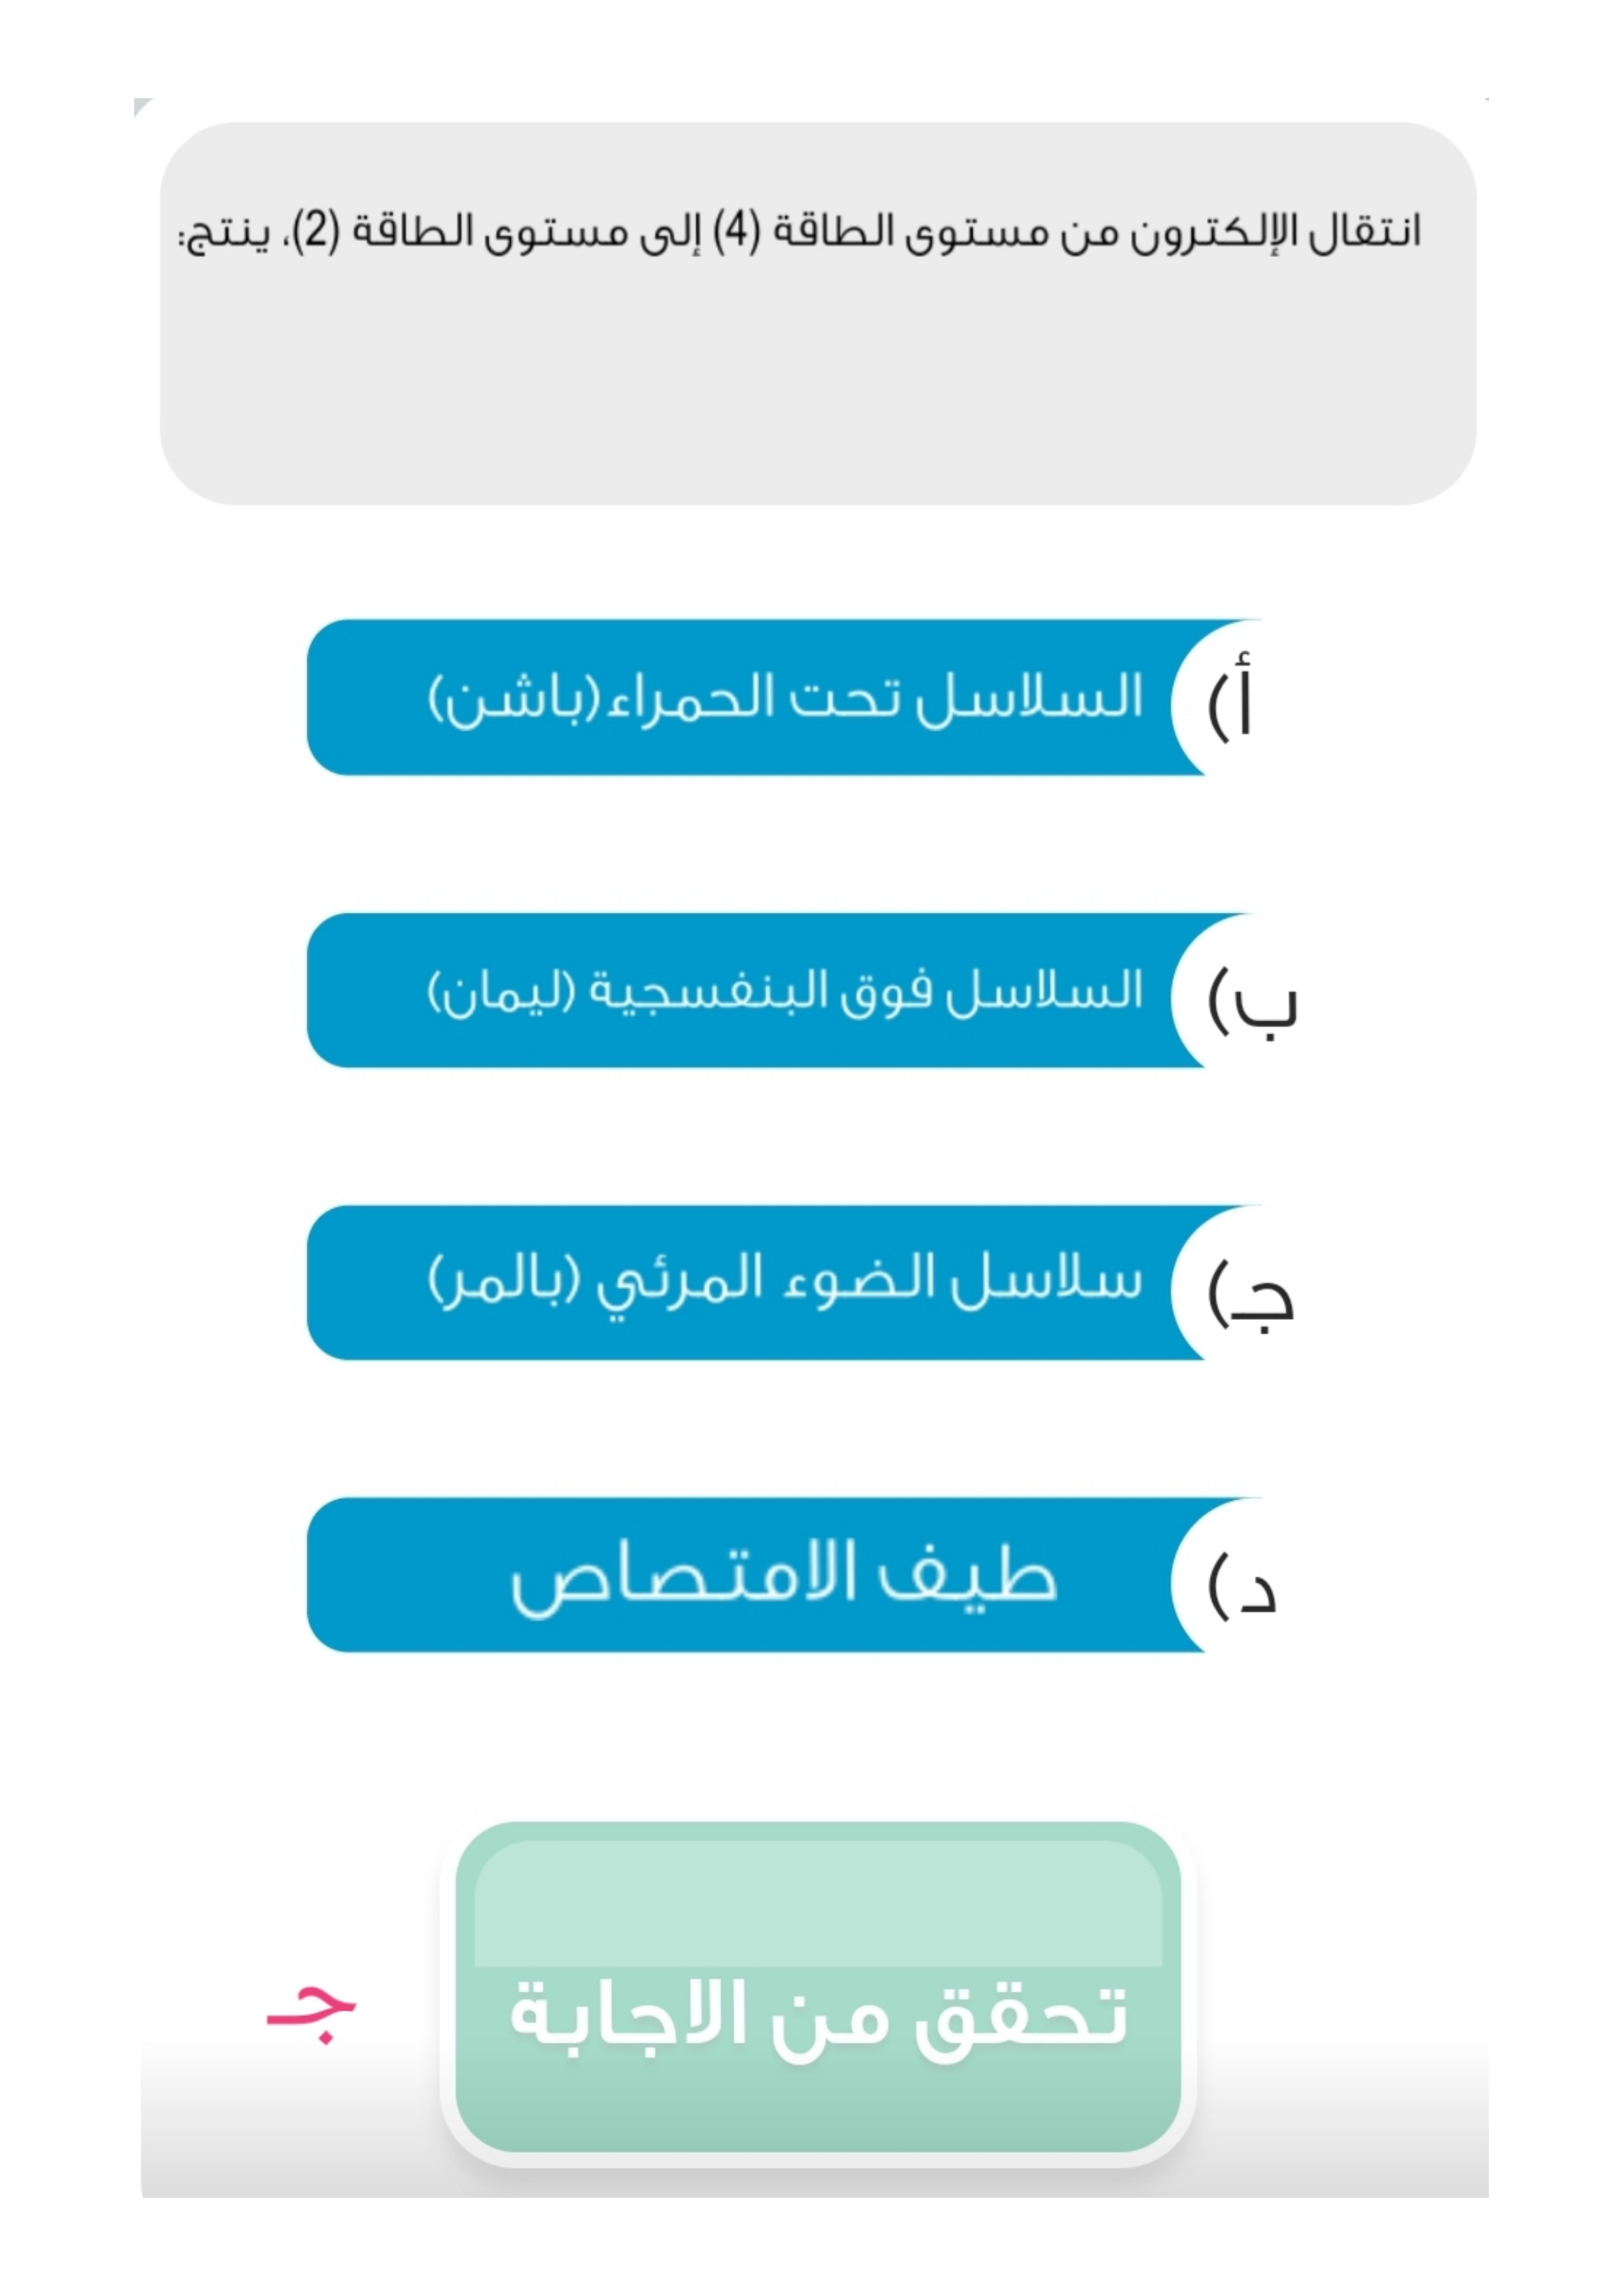 انتقال الإلكترون من مستوى الطاقة (4) إلى مستوى الطاقة (2)، ينتج:
أ) السلاسل تحت الحمراء (باشن)
ب) السلاسل فوق البنفسجية (ليمان)
ج) سلاسل الضوء المرئي (بالمر)
د) طيف الامتصاص
تحقق من الاجابة
جـ